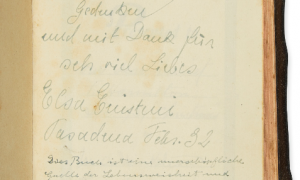 und mit Dank für
sehr viel Liebes
Elsa Einstein
Pasadena Febr. 32
Das Buch ist eine unerschöpfliche
Quelle der Lebensweisheit und